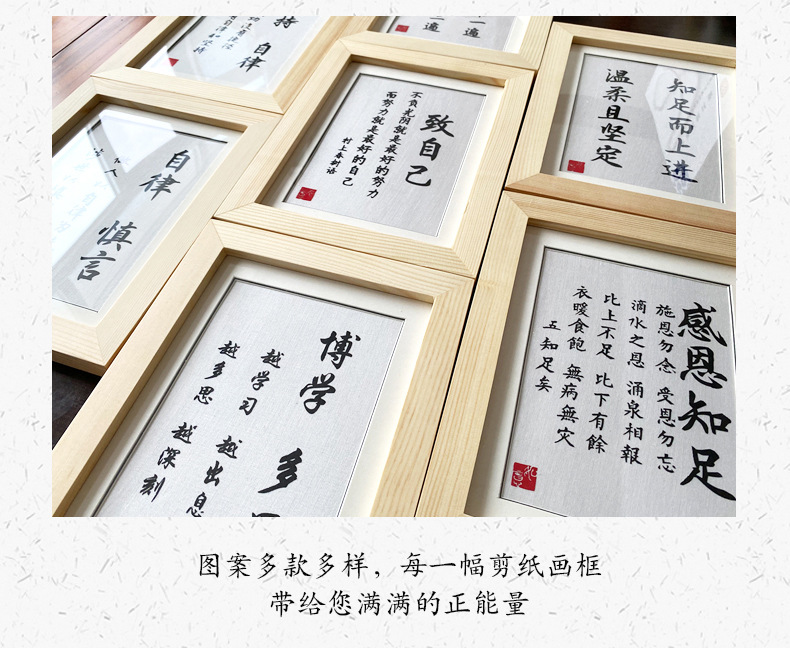 持 自律
致自己
不负光阴就是最好的努力
而努力就是最好的自己
村上春树语
知足而上进
温柔且坚定
自律 慎言
博学 多
越学习 越出息
越多思 越深刻
感恩知足
施恩勿念 受恩勿忘
滴水之恩 涌泉相報
比上不足 比下有餘
衣暖食飽 無病無灾
五知足矣
图案多款多样，每一幅剪纸画框
带给您满满的正能量